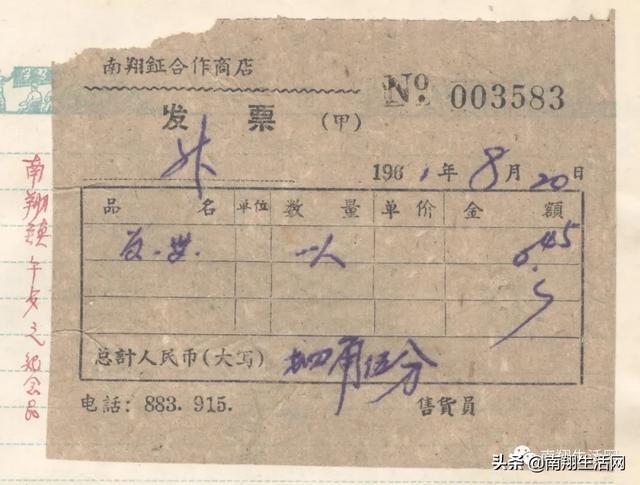 南翔鉦合作商店
№ 003583
发票(甲)
1961年8月20日
品名 单位 数量 单价 金額
一人 0.45
总計人民币(大写) 四角伍分
电話: 883. 915. 售貨員
南翔鎮
紀念品
南翔生活网
头条 @南翔生活网